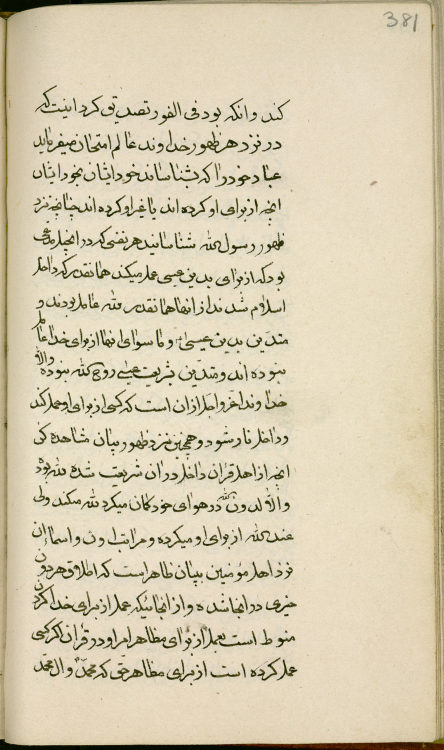 381
کند وانکه بود فی الفور تصدیق کرد اینست که
در نزد هر ظهور خداوند عالم امتحان میفرماید
عباد خود را که بشناساند خود ایشان بخود ایشان
انچه از برای او کرده اند یا غیر او کرده اند چنانچه نزد
ظهور رسول الله شناسانید هر نفسی که در انجیل مدعی
بود که از برای بدین عیسی عمل میکند همانقدر که داخل
اسلام شدند از انها همانقدر لله عامل بودند و
متدین بدین عیسی و ما سوای انها از برای خدا عامل
نبوده اند و متدین بشریعت عیسی روح الله نبوده والا
خداوند اعز و اجل از ان است که کسی از برای او عمل کند
و داخل نار شود و همچنین نزد ظهور بیان مشاهده کن
انچه از اهل قران داخل در ان شریعت شده لله بوده
والا لدون الله در هوای خود گمان میکرد لله میکند ولی
عند الله از برای او میکرده و مراتب دون و اسماء ان
نزد اهل مؤمنین ببیان ظاهر است که اطلاق هر دون
خیری در انجا شده و از انجائیکه عمل از برای خدا کردن
منوط است بعمل از برای مظاهر امر او در قران اگر کسی
عمل کرده است از برای مظاهر حق که محمد و ال محمد